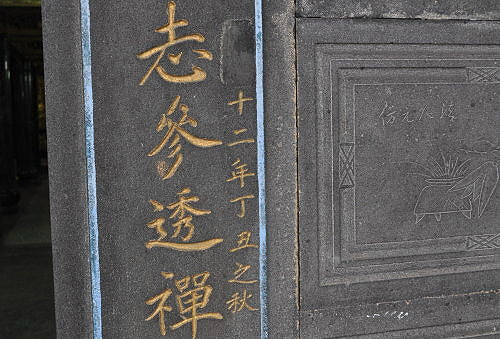 志參透禪
十二年丁丑之秋